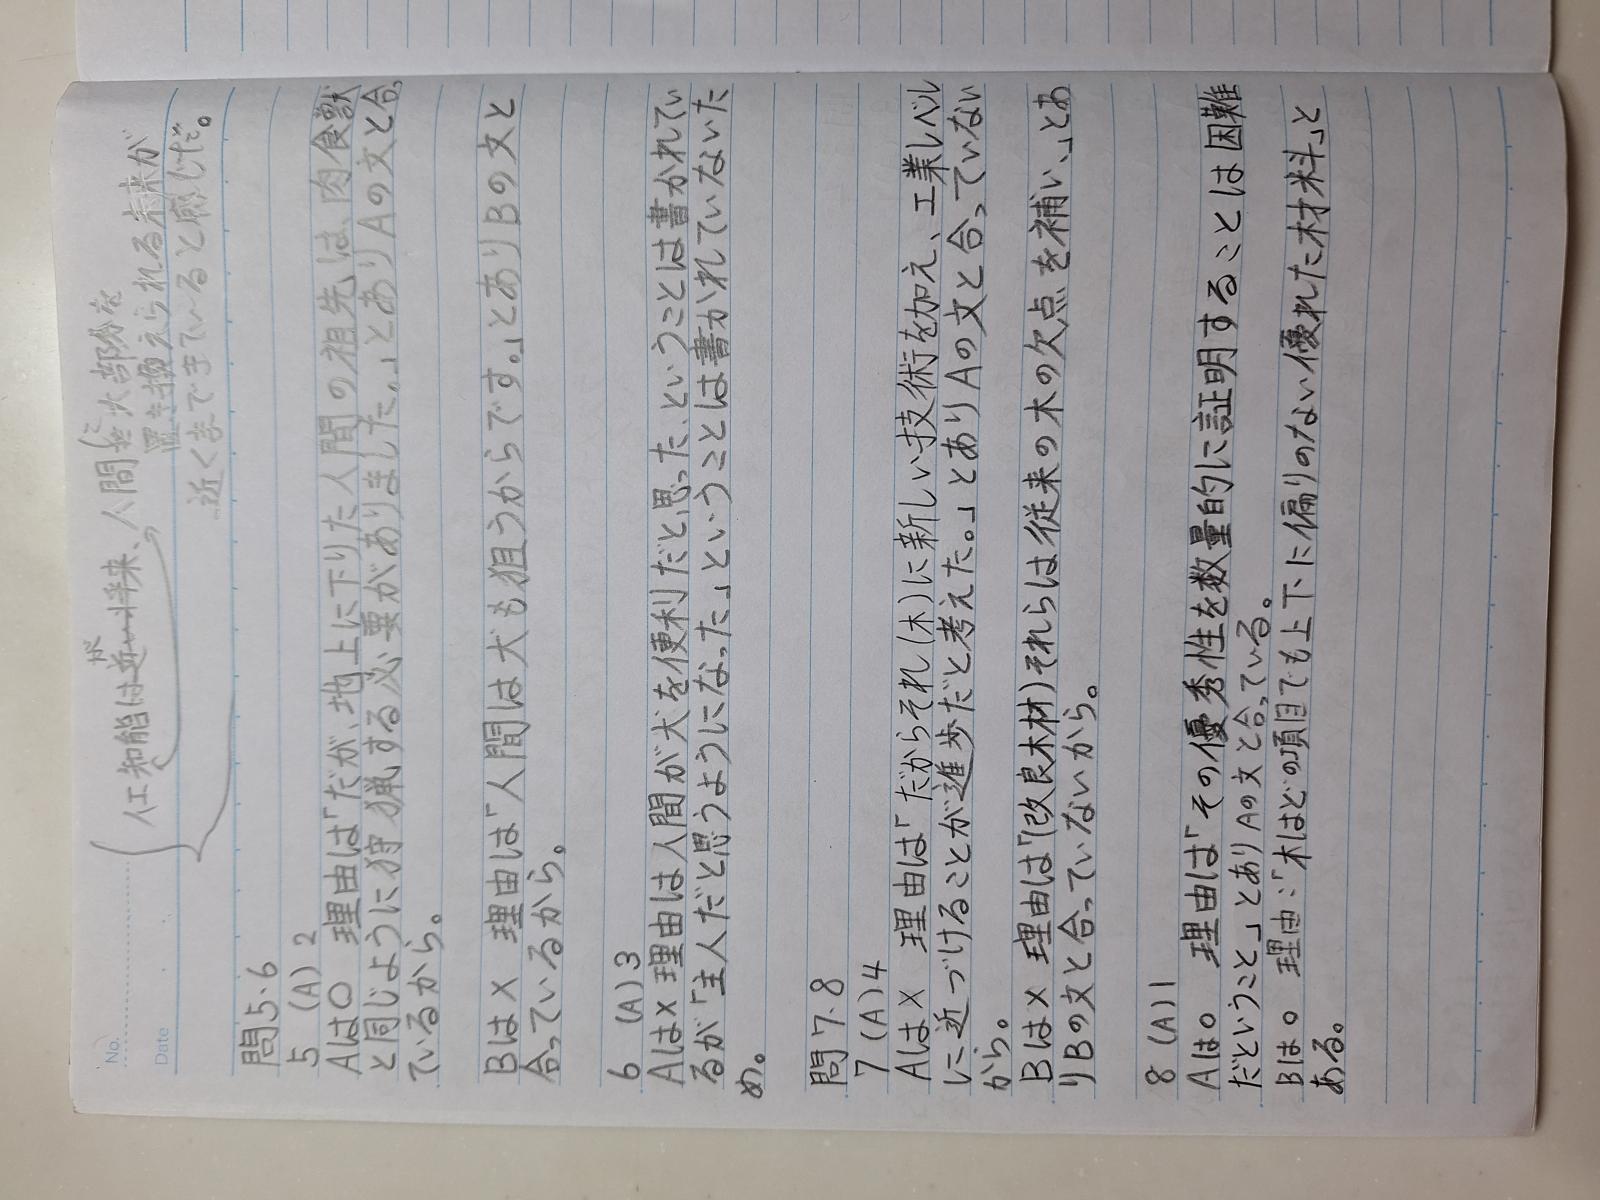 No.
Date
人工知能は近い将来、人間を大部分を
が
置き換えられる未来が
近くまできていると感じた。
問5.6
5 (A) 2
Aは○ 理由は「だが、地上に下りた人間の祖先は、肉食獣
と同じように狩猟する必要がありました。」とありAの文と合っ
ているから。
Bは× 理由は「人間は犬も狙うからです。」とありBの文と
合っているから。
6 (A) 3
Aは× 理由は人間が犬を便利だと思った、ということは書かれてい
るが「主人だと思うようになった」ということは書かれていないた
め。
問7.8
7 (A) 4
Aは× 理由は「だからそれ(木)に新しい技術を加え、工業レベル
に近づけることが進歩だと考えた。」とありAの文と合っていない
から。
Bは× 理由は「(改良木材)それらは従来の木の欠点を補い、」とあ
りBの文と合っていないから。
8 (A) 1
Aは○ 理由は「その優秀性を数量的に証明することは困難
だということ」とありAの文と合っている。
Bは○ 理由:「木はどの項目でも上下に偏りのない優れた材料」と
ある。